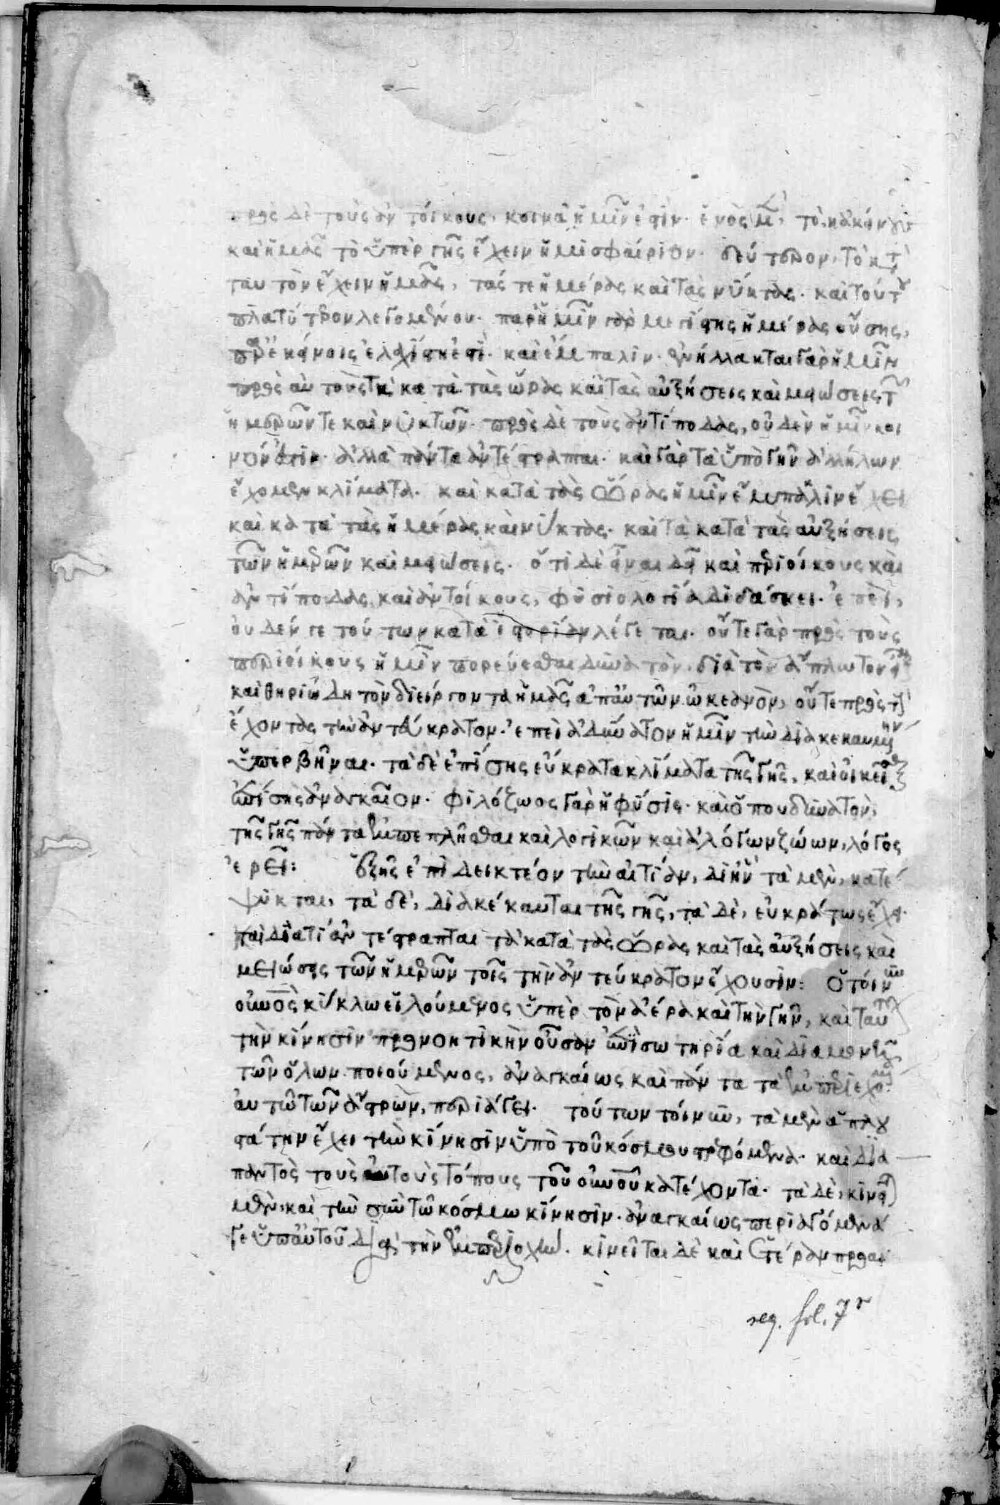 πρὸς δὲ τοὺς ἀντοίκους, κοινὰ ἡμῖν ἐστίν. ἓν μὲν, τὸ κἀκείνους
καὶ ἡμᾶς τὸ ὑπὲρ γῆς ἔχειν ἡμισφαίριον. δεύτερον, τὸ κατὰ
ταυτὸν ἔχειν ἡμᾶς, τάς τε ἡμέρας καὶ τὰς νύκτας. καὶ τούτου
πλατύτερον λεγομένου. παρ' ἡμῖν γὰρ μεγίστης ἡμέρας οὔσης,
παρ' ἐκείνοις ἐλαχίστη ἐστὶ. καὶ ἔμπαλιν. ἐνήλλακται γὰρ ἡμῖν
πρὸς αὐτοὺς τὰ κατὰ τὰς ὥρας καὶ τὰς αὐξήσεις καὶ μειώσεις τῶν
ἡμερῶν τε καὶ νυκτῶν. πρὸς δὲ τοὺς ἀντίποδας, οὐδὲν ἡμῖν κοι
νόν ἐστιν. ἀλλὰ πάντα ἀντέστραπται. καὶ γὰρ τὰ ὑπὸ γῆν ἀλλήλων
ἔχομεν κλίματα. καὶ κατὰ τὰς ὥρας ἡμῖν ἔμπαλιν ἔχει
καὶ κατὰ τὰς ἡμέρας καὶ νύκτας. καὶ τὰ κατὰ τὰς αὐξήσεις
τῶν ἡμερῶν καὶ μειώσεις. ὅτι δὲ εἶναι δεῖ καὶ περιοίκους καὶ
ἀντίποδας καὶ ἀντοίκους, φυσιολογία διδάσκει. ἐπεὶ,
οὐδέν γε τούτων κατὰ ἱστορίαν λέγεται. οὔτε γὰρ πρὸς τοὺς
περιοίκους ἡμῖν πορεύεσθαι δυνατὸν, διὰ τὸν ἄπλωτον εἶναι
καὶ θηριώδη τὸν διείργοντα ἡμᾶς ἀπ' αὐτῶν ὠκεανὸν, οὔτε πρὸς τοὺς
ἔχοντας τὴν ἀντεύκρατον. ἐπεὶ ἀδύνατον ἡμῖν τὴν διακεκαυμένην
ὑπερβῆναι. τὰ δὲ ἐπίσης εὔκρατα κλίματα τῆς γῆς, καὶ οἰκεῖσθαι
ἐπίσης ἀναγκαῖον. φιλόζωος γὰρ ἡ φύσις. καὶ ὅπου δυνατὸν,
τῆς γῆς πάντα ἐμπεπλῆσθαι καὶ λογικῶν καὶ ἀλόγων ζώων, λόγος
ἐρεῖ: ἑξῆς ἐπιδεικτέον τὴν αἰτίαν, δι' ἣν τὰ μὲν, κατέ
ψυκται, τὰ δὲ, διακέκαυται τῆς γῆς, τὰ δὲ, εὐκράτως ἔχει.
καὶ διατί ἀντέστραπται τὰ κατὰ τὰς ὥρας καὶ τὰς αὐξήσεις καὶ
μειώσεις τῶν ἡμερῶν τοῖς τὴν ἀντεύκρατον ἔχουσιν: ὁ τοίνυν
οὐρανὸς κύκλω εἱλούμενος ὑπὲρ τὸν ἀέρα καὶ τὴν γῆν, καὶ ταύτην
τὴν κίνησιν προνοητικὴν οὖσαν ἐπὶ σωτηρία καὶ διαμονῇ
τῶν ὅλων ποιούμενος, ἀναγκαίως καὶ πάντα τὰ ἐμπεριεχόμενα
αὐτῶ τῶν ἄστρων, περιάγει. τούτων τοίνυν, τὰ μὲν ἁπλου
στάτην ἔχει τὴν κίνησιν ὑπὸ τοῦ κόσμου στρεφόμενα. καὶ διὰ
παντὸς τοὺς αὐτοὺς τόπους τοῦ οὐρανοῦ κατέχοντα. τὰ δὲ, κινεῖται
μὲν, καὶ τὴν σὺν τῶ κόσμω κίνησιν. ἀναγκαίως περιαγόμενά
γε ὑπ' αὐτοῦ διὰ τὴν ἐμπεριοχήν. κινεῖται δὲ καὶ ἑτέραν προαι
seq. fol. 7r